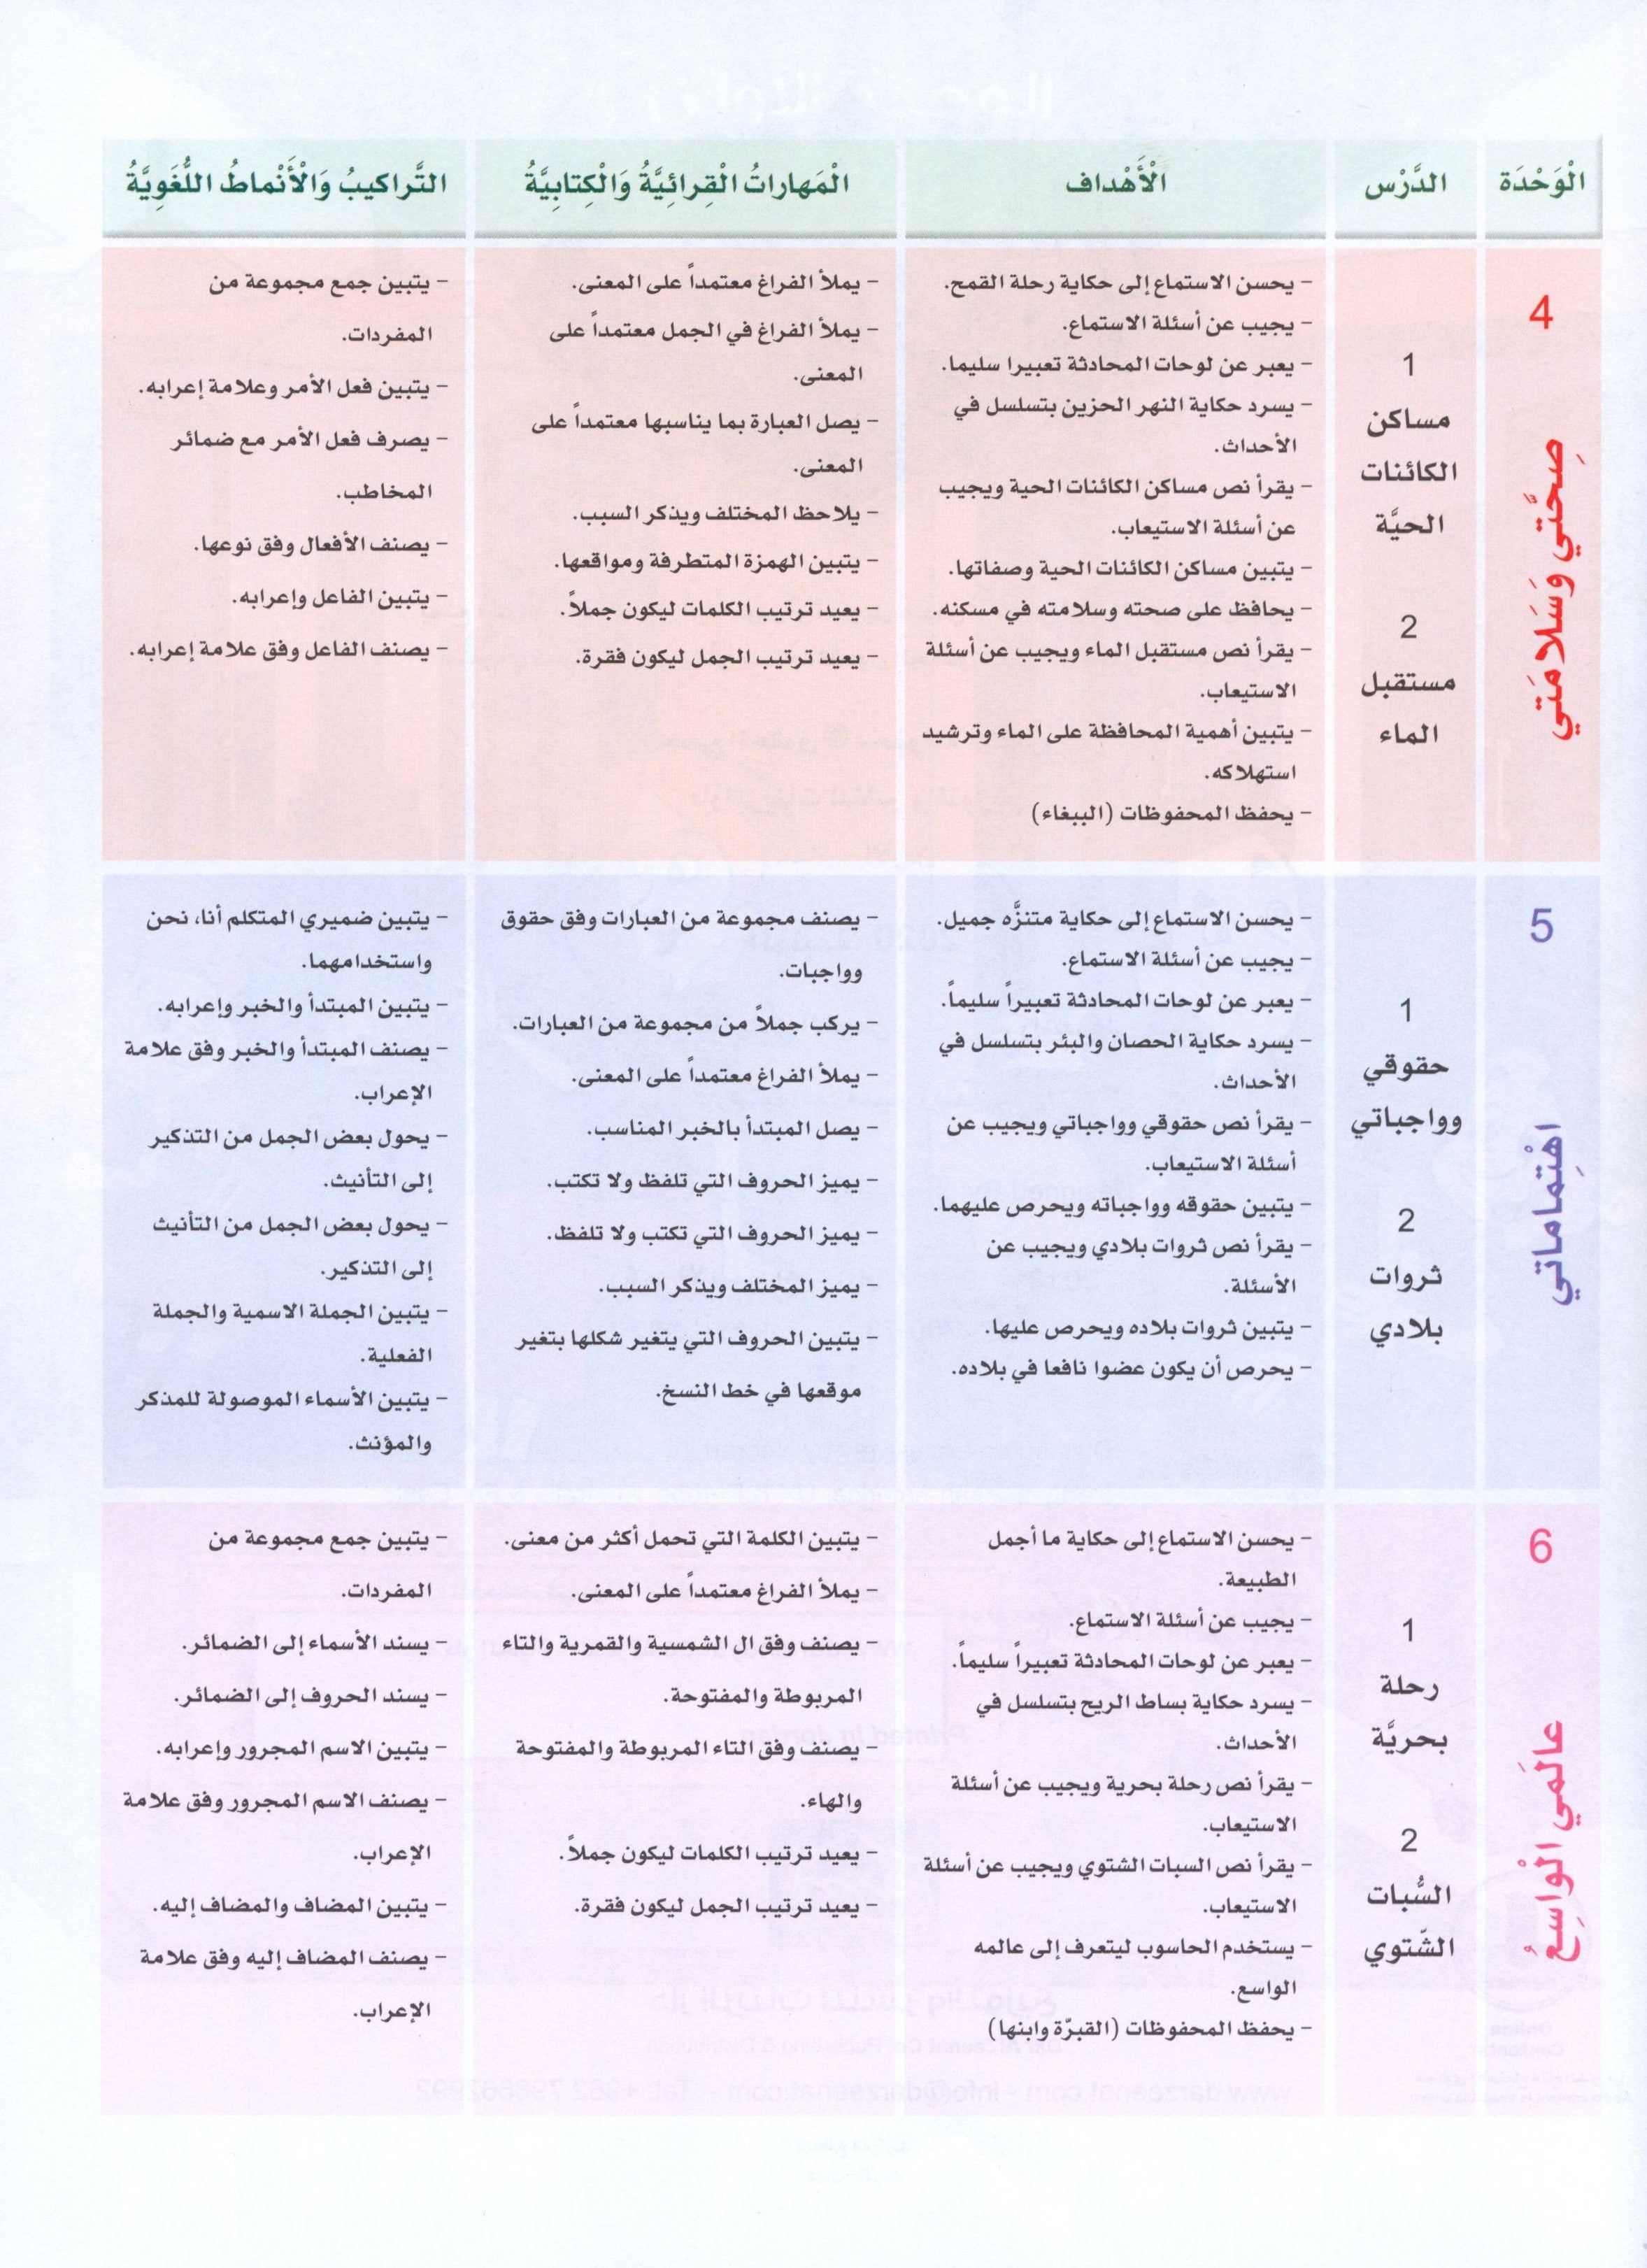 الْوَحْدَة
الدَّرْس
الْأَهْداف
الْمَهاراتُ الْقِرائِيَّةُ وَالْكِتابِيَّةُ
التَّراكيبُ وَالْأَنْماطُ اللُّغَوِيَّةُ
4
صِحَّتي وَسَلامَتي
1
مساكن
الكائنات
الحيَّة
2
مستقبل
الماء
- يحسن الاستماع إلى حكاية رحلة القمح.
- يجيب عن أسئلة الاستماع.
- يعبر عن لوحات المحادثة تعبيرا سليما.
- يسرد حكاية النهر الحزين بتسلسل في
الأحداث.
- يقرأ نص مساكن الكائنات الحية ويجيب
عن أسئلة الاستيعاب.
- يتبين مساكن الكائنات الحية وصفاتها.
- يحافظ على صحته وسلامته في مسكنه.
- يقرأ نص مستقبل الماء ويجيب عن أسئلة
الاستيعاب.
- يتبين أهمية المحافظة على الماء وترشيد
استهلاكه.
- يحفظ المحفوظات (الببغاء)
- يملأ الفراغ معتمداً على المعنى.
- يملأ الفراغ في الجمل معتمداً على
المعنى.
- يصل العبارة بما يناسبها معتمداً على
المعنى.
- يلاحظ المختلف ويذكر السبب.
- يتبين الهمزة المتطرفة ومواقعها.
- يعيد ترتيب الكلمات ليكون جملاً.
- يعيد ترتيب الجمل ليكون فقرة.
- يتبين جمع مجموعة من
المفردات.
- يتبين فعل الأمر وعلامة إعرابه.
- يصرف فعل الأمر مع ضمائر
المخاطب.
- يصنف الأفعال وفق نوعها.
- يتبين الفاعل وإعرابه.
- يصنف الفاعل وفق علامة إعرابه.
5
اهْتِماماتي
1
حقوقي
وواجباتي
2
ثروات
بلادي
- يحسن الاستماع إلى حكاية متنزَّه جميل.
- يجيب عن أسئلة الاستماع.
- يعبر عن لوحات المحادثة تعبيراً سليماً.
- يسرد حكاية الحصان والبئر بتسلسل في
الأحداث.
- يقرأ نص حقوقي وواجباتي ويجيب عن
أسئلة الاستيعاب.
- يتبين حقوقه وواجباته ويحرص عليهما.
- يقرأ نص ثروات بلادي ويجيب عن
الأسئلة.
- يتبين ثروات بلاده ويحرص عليها.
- يحرص أن يكون عضوا نافعا في بلاده.
- يصنف مجموعة من العبارات وفق حقوق
وواجبات.
- يركب جملاً من مجموعة من العبارات.
- يملأ الفراغ معتمداً على المعنى.
- يصل المبتدأ بالخبر المناسب.
- يميز الحروف التي تلفظ ولا تكتب.
- يميز الحروف التي تكتب ولا تلفظ.
- يميز المختلف ويذكر السبب.
- يتبين الحروف التي يتغير شكلها بتغير
موقعها في خط النسخ.
- يتبين ضميري المتكلم أنا، نحن
واستخدامهما.
- يتبين المبتدأ والخبر وإعرابه.
- يصنف المبتدأ والخبر وفق علامة
الإعراب.
- يحول بعض الجمل من التذكير
إلى التأنيث.
- يحول بعض الجمل من التأنيث
إلى التذكير.
- يتبين الجملة الاسمية والجملة
الفعلية.
- يتبين الأسماء الموصولة للمذكر
والمؤنث.
6
عالَمي الْواسِعُ
1
رحلة
بحريَّة
2
السُّبات
الشّتوي
- يحسن الاستماع إلى حكاية ما أجمل
الطبيعة.
- يجيب عن أسئلة الاستماع.
- يعبر عن لوحات المحادثة تعبيراً سليماً.
- يسرد حكاية بساط الريح بتسلسل في
الأحداث.
- يقرأ نص رحلة بحرية ويجيب عن أسئلة
الاستيعاب.
- يقرأ نص السبات الشتوي ويجيب عن أسئلة
الاستيعاب.
- يستخدم الحاسوب ليتعرف إلى عالمه
الواسع.
- يحفظ المحفوظات (القبرّة وابنها)
- يتبين الكلمة التي تحمل أكثر من معنى.
- يملأ الفراغ معتمداً على المعنى.
- يصنف وفق ال الشمسية والقمرية والتاء
المربوطة والمفتوحة.
- يصنف وفق التاء المربوطة والمفتوحة
والهاء.
- يعيد ترتيب الكلمات ليكون جملاً.
- يعيد ترتيب الجمل ليكون فقرة.
- يتبين جمع مجموعة من
المفردات.
- يسند الأسماء إلى الضمائر.
- يسند الحروف إلى الضمائر.
- يتبين الاسم المجرور وإعرابه.
- يصنف الاسم المجرور وفق علامة
الإعراب.
- يتبين المضاف والمضاف إليه.
- يصنف المضاف إليه وفق علامة
الإعراب.